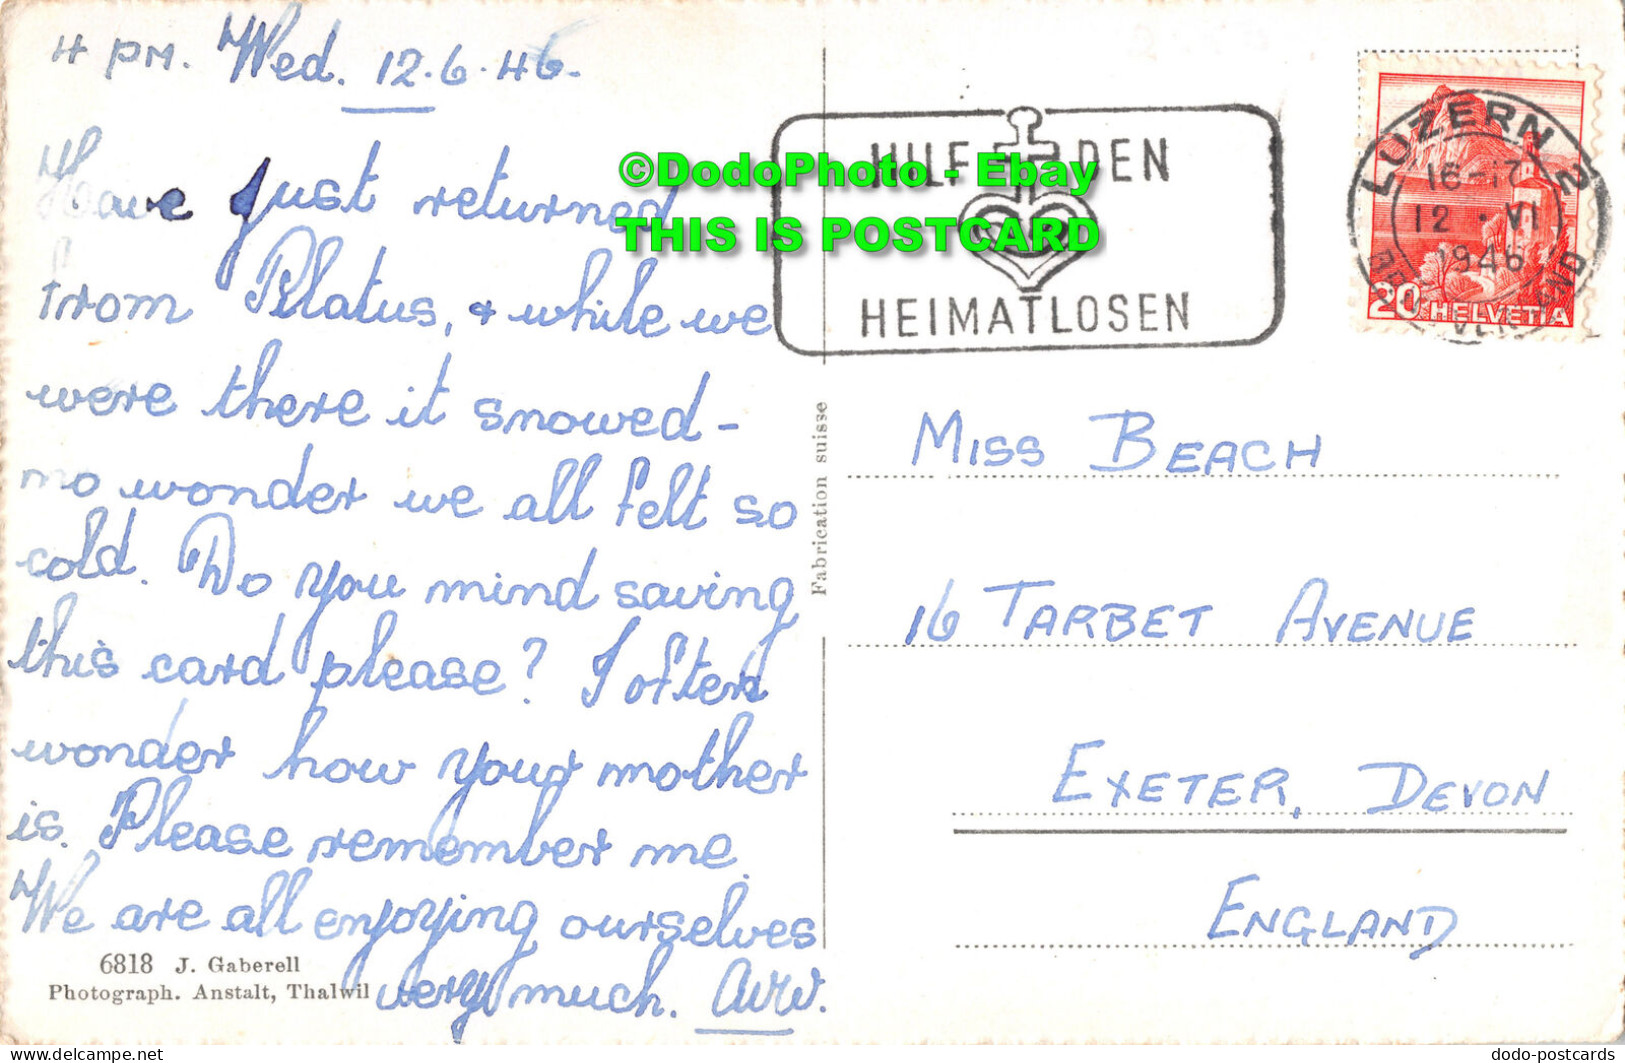 4 PM. Wed. 12.6.46.
Have just returned
from Pilatus, & while we
were there it snowed -
no wonder we all felt so
cold. Do you mind saving
this card please? I often
wonder how your mother
is. Please remember me.
We are all enjoying ourselves
very much.
6818 J. Gaberell
Photograph. Anstalt, Thalwil
Fabrication suisse
HILF DEN
HEIMATLOSEN
©DodoPhoto - Ebay
THIS IS POSTCARD
LUZERN 2
16-17
12 · VI
1946
20 HELVETIA
MISS BEACH
16 TARBET AVENUE
EXETER, DEVON
ENGLAND
dodo-postcards